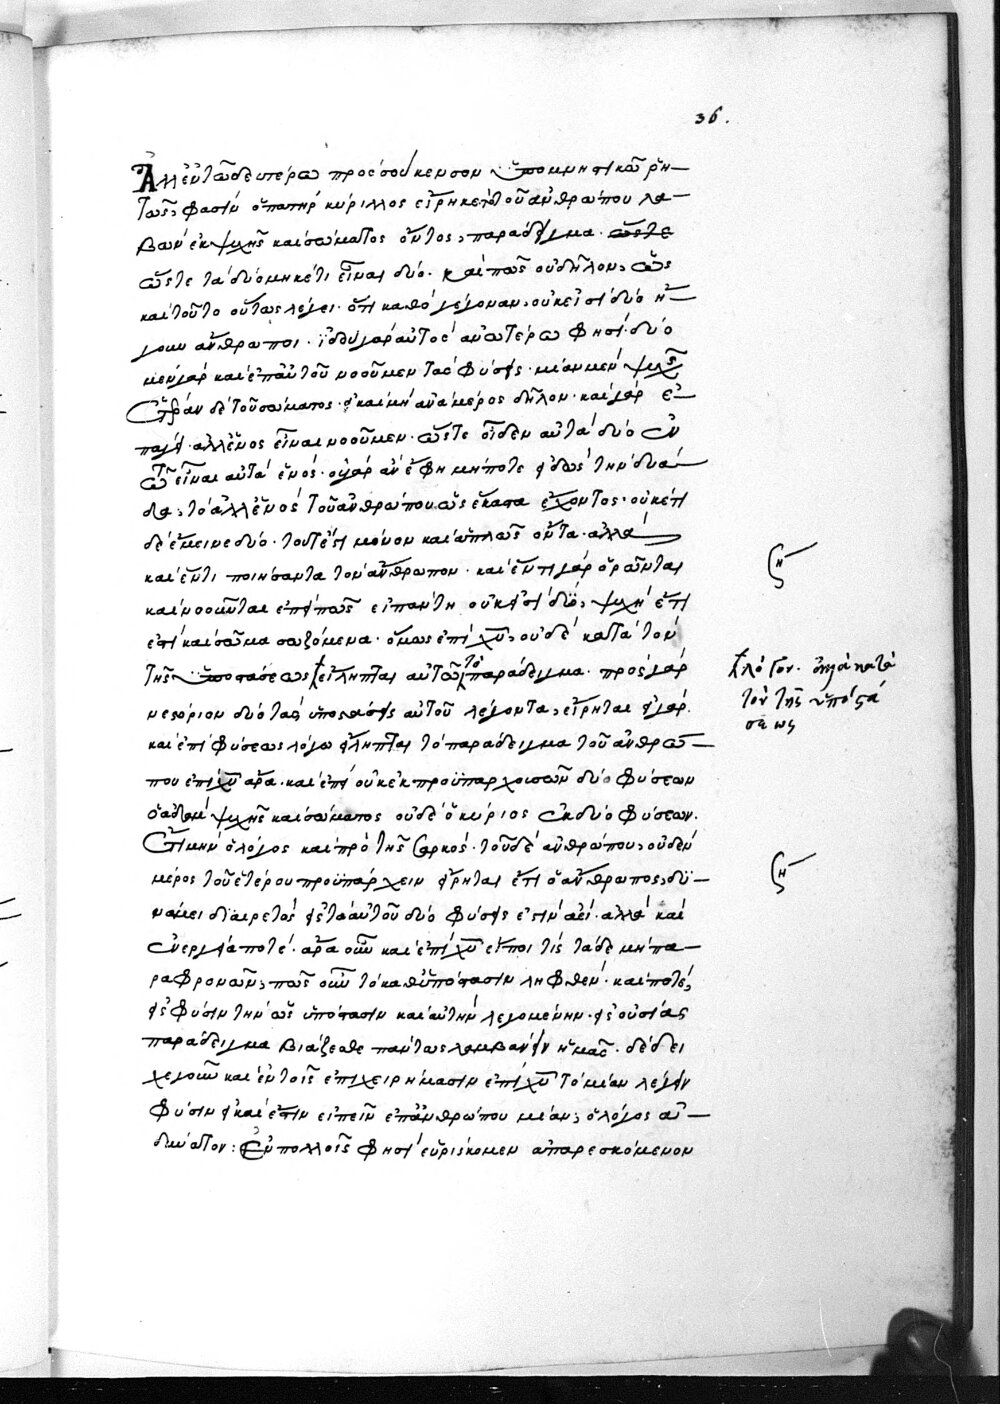 36.
Ἀλλ' ἐν τῶ δευτέρω πρὸς σούκενσον ὑπομνηστικῶ ῥη-
τῶς, φασὶν ὁ πατὴρ κύριλλος εἴρηκε· τοῦ ἀνθρώπου λα-
βὼν ἐκ ψυχῆς καὶ σώματος ὄντος, παράδειγμα.
ὥστε τὰ δύο μηκέτι εἶναι δύο. καὶ πῶς οὐ δῆλον, ὡς
καὶ τοῦτο οὕτως λέγει. ὅτι καθὸ γέγοναν, οὐκ εἰσὶ δύο ἤ-
γουν ἄνθρωποι. ἰδοὺ γὰρ αὐτὸς ἀνωτέρω φησί· δύο
μὲν γὰρ καὶ ἐπ' αὐτοῦ νοοῦμεν τὰς φύσεις· μίαν μὲν ψυχῆς
ἑτέραν δὲ τοῦ σώματος. εἰ καὶ μὴ ἀνὰ μέρος δῆλον. καὶ γὰρ ἐ-
πάγει. ἀλλ' ἑνὸς εἶναι νοοῦμεν. ὥστε οἶδεν αὐτὰ δύο ἐν
τῶ εἶναι αὐτὰ ἑνός. οὐ γὰρ ἂν ἔφη μήποτε εἰδὼς τὴν δυά-
δα, τὸ ἀλλ' ἑνὸς τοῦ ἀνθρώπου ὡς ἕκαστα ἔχοντος. οὐκέτι
δὲ ἔμεινε δύο. τουτέστι μόνον καὶ ἁπλῶς ὄντα. ἀλλὰ
καὶ ἕν τι ποιήσαντα τὸν ἄνθρωπον. καὶ ἕν τι γὰρ ὁρῶνται
καὶ νοοῦνται ἐπεὶ πῶς εἰ πάντη οὐκ εἰσὶ δύο, ψυχὴ ἔτι
ἐστὶ καὶ σῶμα σωζόμενα. ὅμως ἐπὶ χ̅υ̅, οὐδὲ κατὰ τὸν
τῆς ὑποστάσεως εἴληπται αὐτῶ τὸ παράδειγμα. πρὸς γὰρ
νεστόριον δύο τὰς ὑποστάσεις αὐτοῦ λέγοντα, εἴρηται εἰ γὰρ.
καὶ ἐπὶ φύσεως λόγω εἴληπται τὸ παράδειγμα τοῦ ἀνθρώ-
που ἐπὶ χ̅υ̅ ἄρα. καὶ ἐπεὶ οὐκ ἐκ προϋπαρχουσῶν δύο φύσεων
ὁ ἀδὰμ ψυχῆς καὶ σώματος οὐδὲ ὁ κύριος ἐκ δύο φύσεων.
ἔτι μὴν ὁ λόγος καὶ πρὸ τῆς σαρκός. τοῦ δὲ ἀνθρώπου, οὐδὲν
μέρος τοῦ ἑτέρου προϋπάρχειν εἴρηται ἔτι ὁ ἄνθρωπος, δυ-
νάμει διαιρετὸς εἰς τὰ αὐτοῦ δύο φύσεις ἐστὶν ἀεί. ἀλλὰ καὶ
ἐνεργεία ποτέ. ἆρα οὖν καὶ ἐπὶ χ̅υ̅ εἴποι τίς ταῦτα μὴ πα-
ραφρονῶν, πῶς οὖν τὸ καθ' ὑπόστασιν ληφθέν. καὶ ποτέ,
εἰς φύσιν τὴν ὡς ὑπόστασιν καὶ αὐτὴν λεγομένην. εἰς οὐσίας
παράδειγμα βιάζεσθε πάντως λαμβάνειν ἡμᾶς. δέδει
χεγουν καὶ ἐν τοῖς ἐπιχειρήμασιν ἐπὶ χ̅υ̅ τὸ μίαν λέγειν
φύσιν εἰ καὶ ἔστιν εἰπεῖν ἐπ' ἀνθρώπου μίαν, ὁ λόγος ἀ-
δικώτατον: Ἐν πολλοῖς φησὶ εὑρίσκομεν ἀπαρεσκόμενον
ση
λόγον. ἀλλὰ κατὰ
τὸν τῆς ὑποστά
σεως
ση